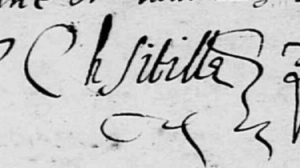 Ch Sibille